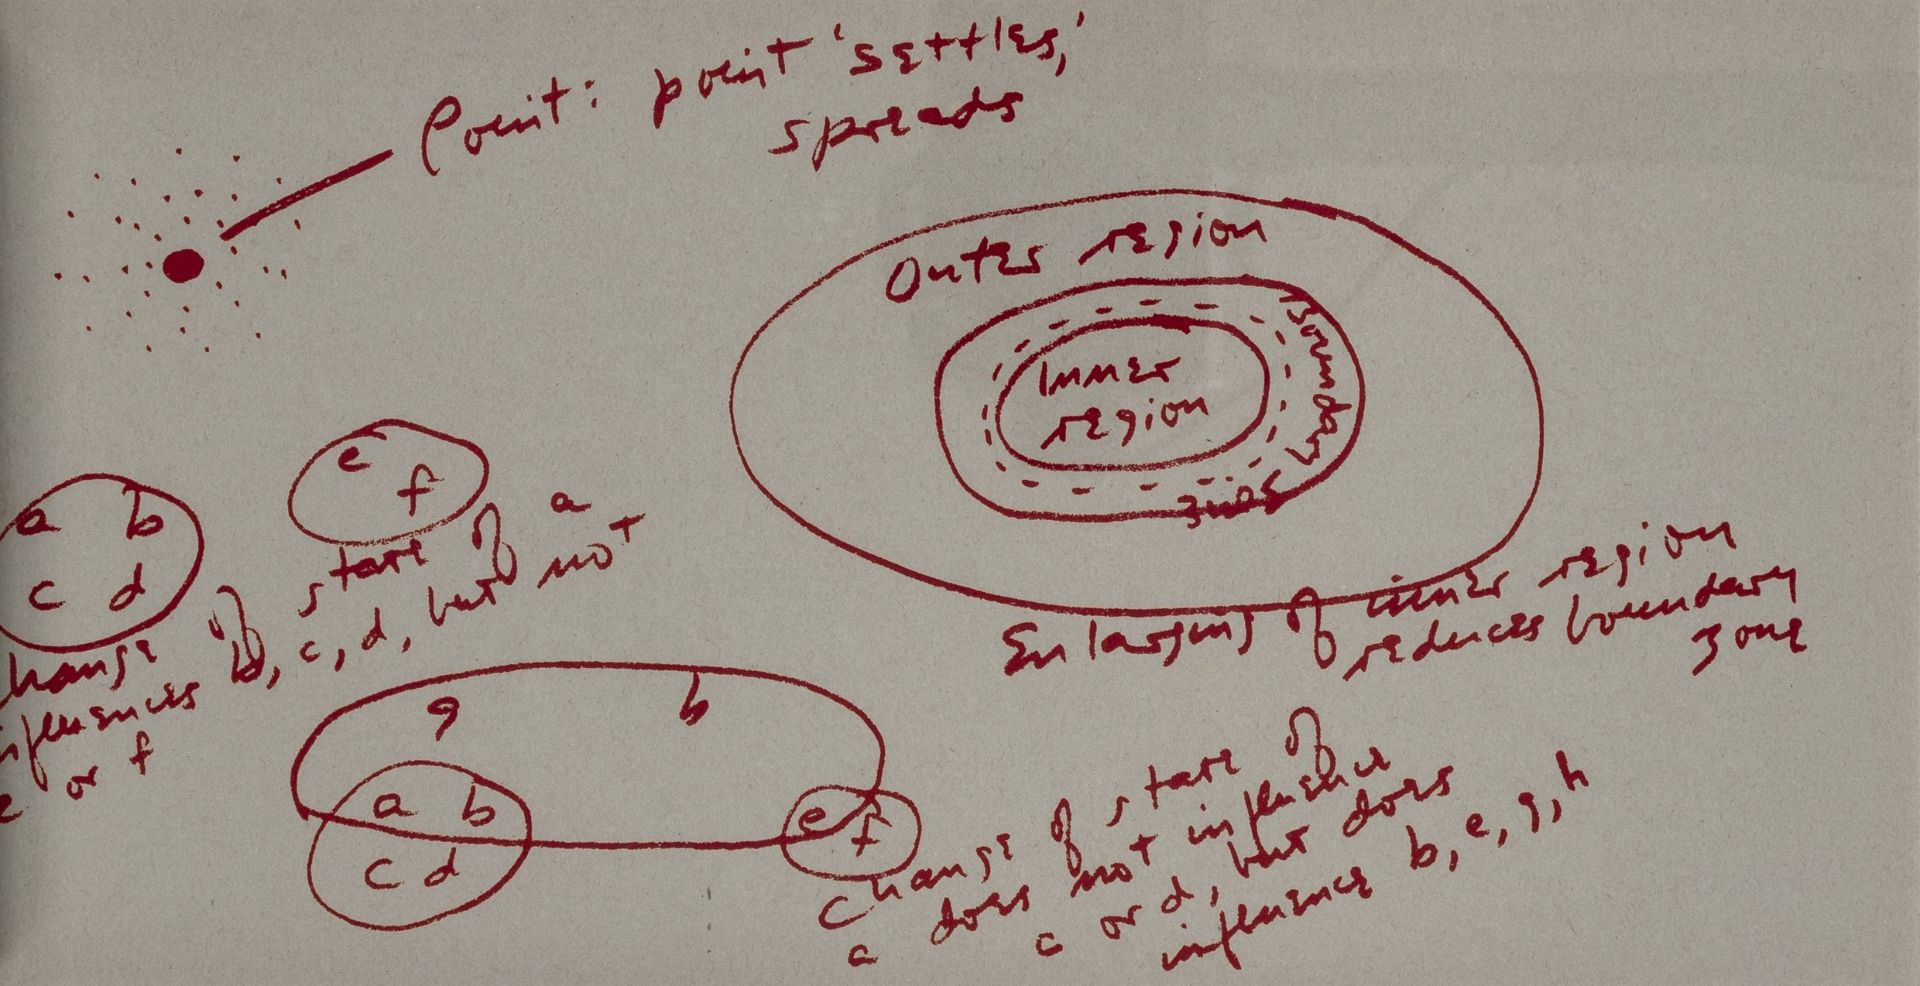 Point: point 'settles,'
spreads
Outer region
Inner
region
Boundary
zone
Enlarging of inner region
reduces boundary
zone
e
f
a b
c d
hange of state of a
nfluences b, c, d, but not
e or f
g h
a b
c d
e
f
Change of state of
a does not influence
c or d, but does
influence b, e, g, h